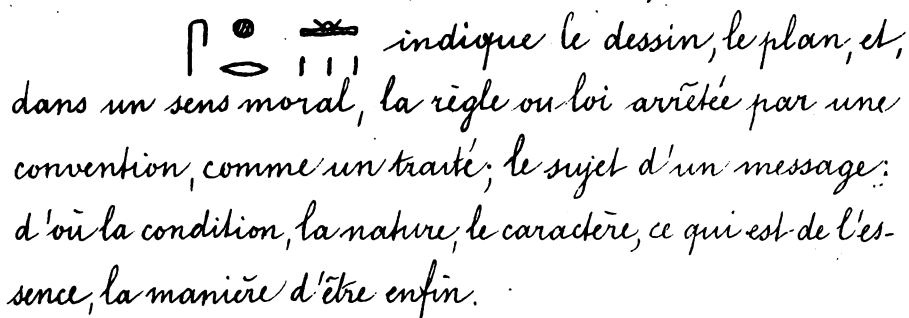 𓋴𓐍𓂋𓏛𓏥 indique le dessin, le plan, et,
dans un sens moral, la règle ou loi arrêtée par une
convention, comme un traité; le sujet d'un message:
d'où la condition, la nature, le caractère, ce qui est de l'es-
sence, la manière d'être enfin.